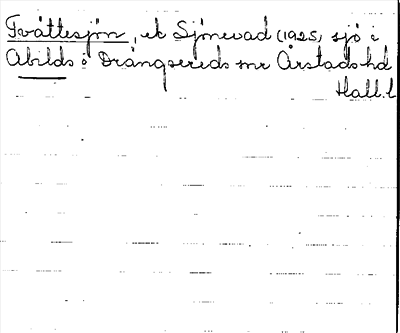 Tvättesjön, ek Sjönevad (1925, sjö i
Abilds o Drängsereds snr Årstads hd
Hall.l